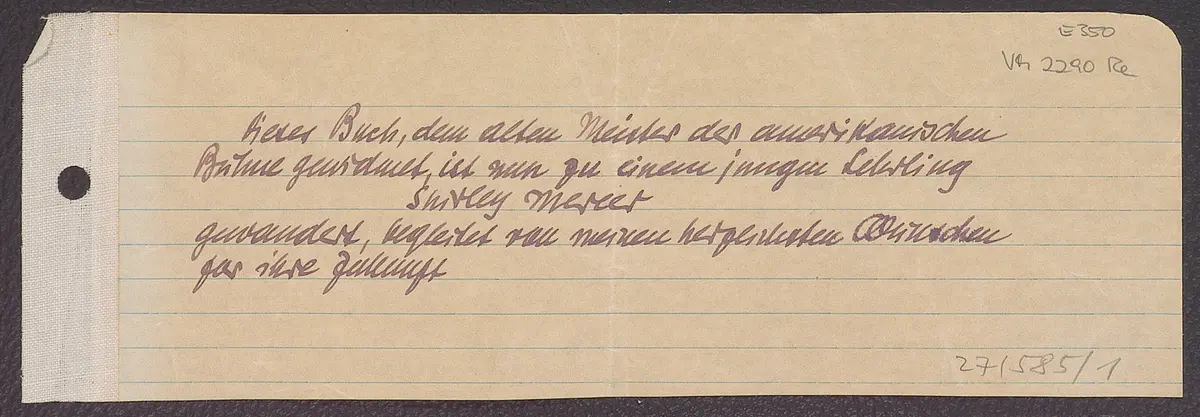 E 350
Vh 2290 Re
Dieses Buch, dem alten Meister der amerikanischen
Bühne gewidmet, ist nun zu einem jungen Lehrling
Shirley Mercer
gewandert, begleitet von meinen herzlichsten Wünschen
für ihre Zukunft
27/585/1